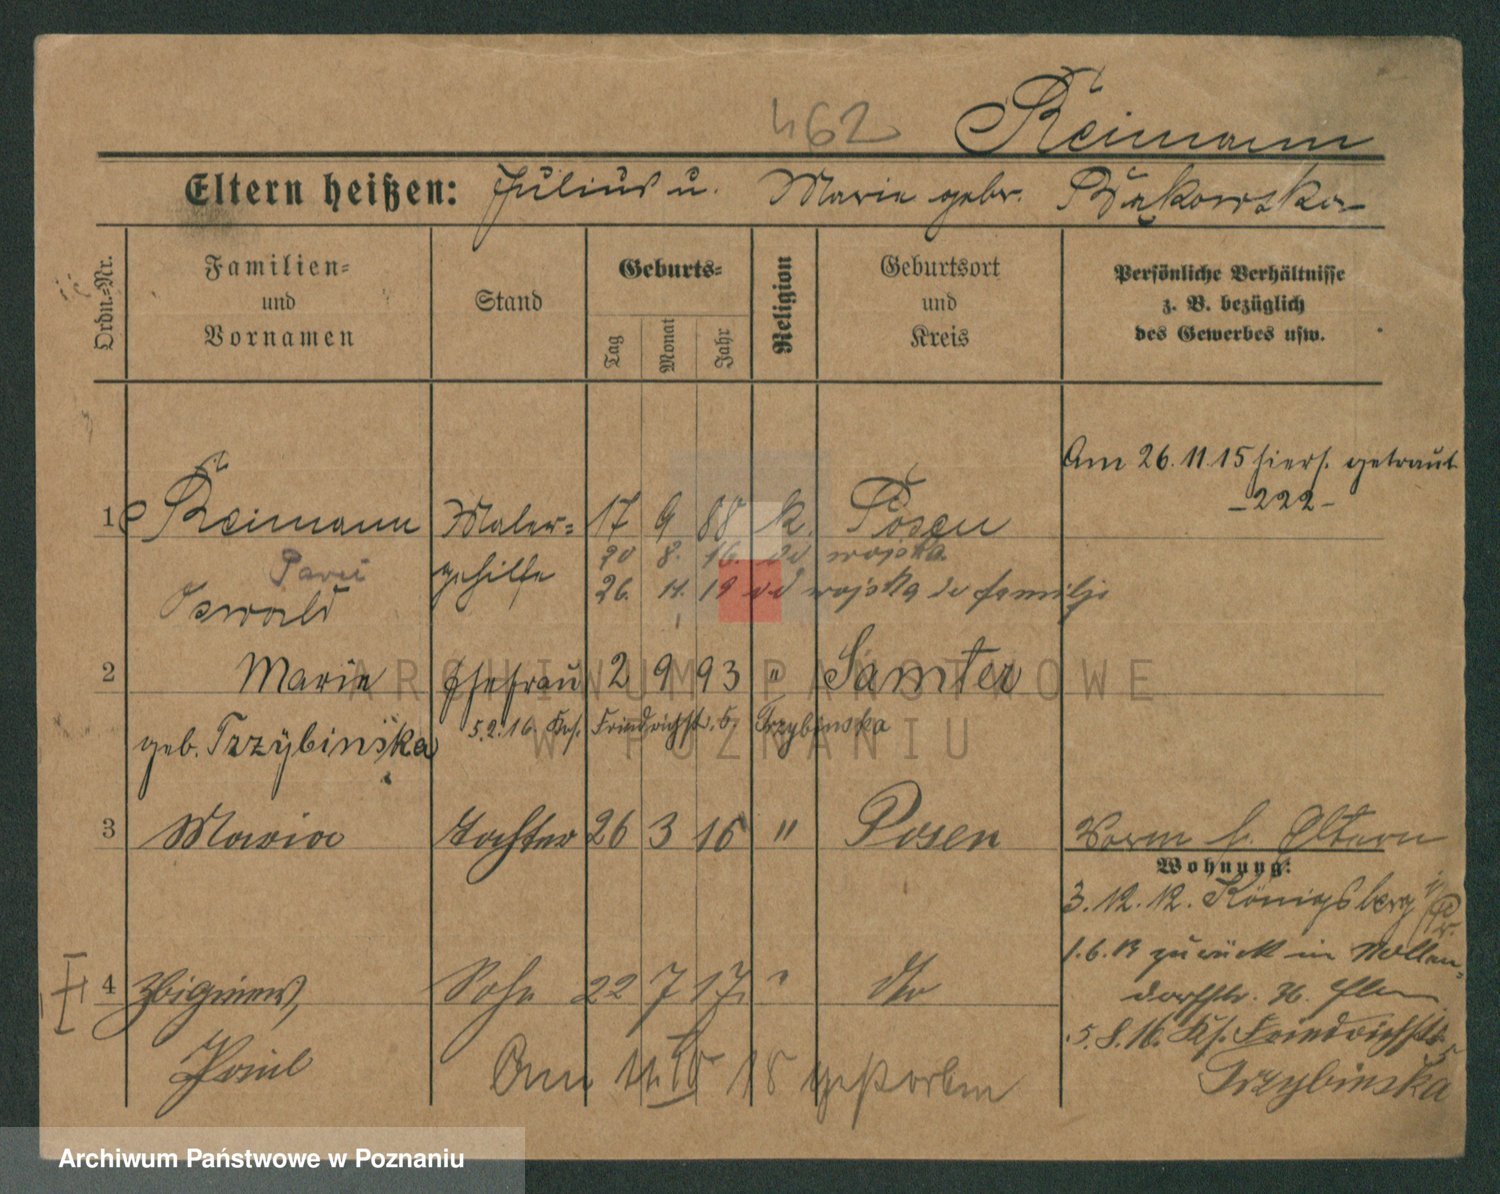 462 Reimann
Eltern heißen: Julius u. Marie gebr. Bąkowska
Ordn.-Nr.
Familien-
und
Vornamen
Stand
Geburts-
Tag
Monat
Jahr
Religion
Geburtsort
und
Kreis
Persönliche Verhältnisse
z. B. bezüglich
des Gewerbes usw.
Am 26.11.15 hiers. getraut
-222-
1 Reimann Maler- 17 9 88 k. Posen
20 8. 16. do wojska
Oswald gehilfe
26. 11. 19 od wojska do familji
2 Marie Ehefrau 2 9 93 " Samter
geb. Trzybinska 5.2.16 Ks. Friedrichstr. 5. Trzybinska
3 Maria Tochter 26 3 16 " Posen Worm b. Eltern
Wohnung:
3.12.12. Königsberg i/Pr.
1.6.13 zurück in Nollen-
dorfstr. 36. Eltern
4 Zbigniew, Sohn 22 7 17. " dto
5.8.16. Ks. Friedrichstr. 5
Paul Am 11. IV 18 gestorben
Trzybinska
ARCHIWUM PAŃSTWOWE
W POZNANIU
Archiwum Państwowe w Poznaniu